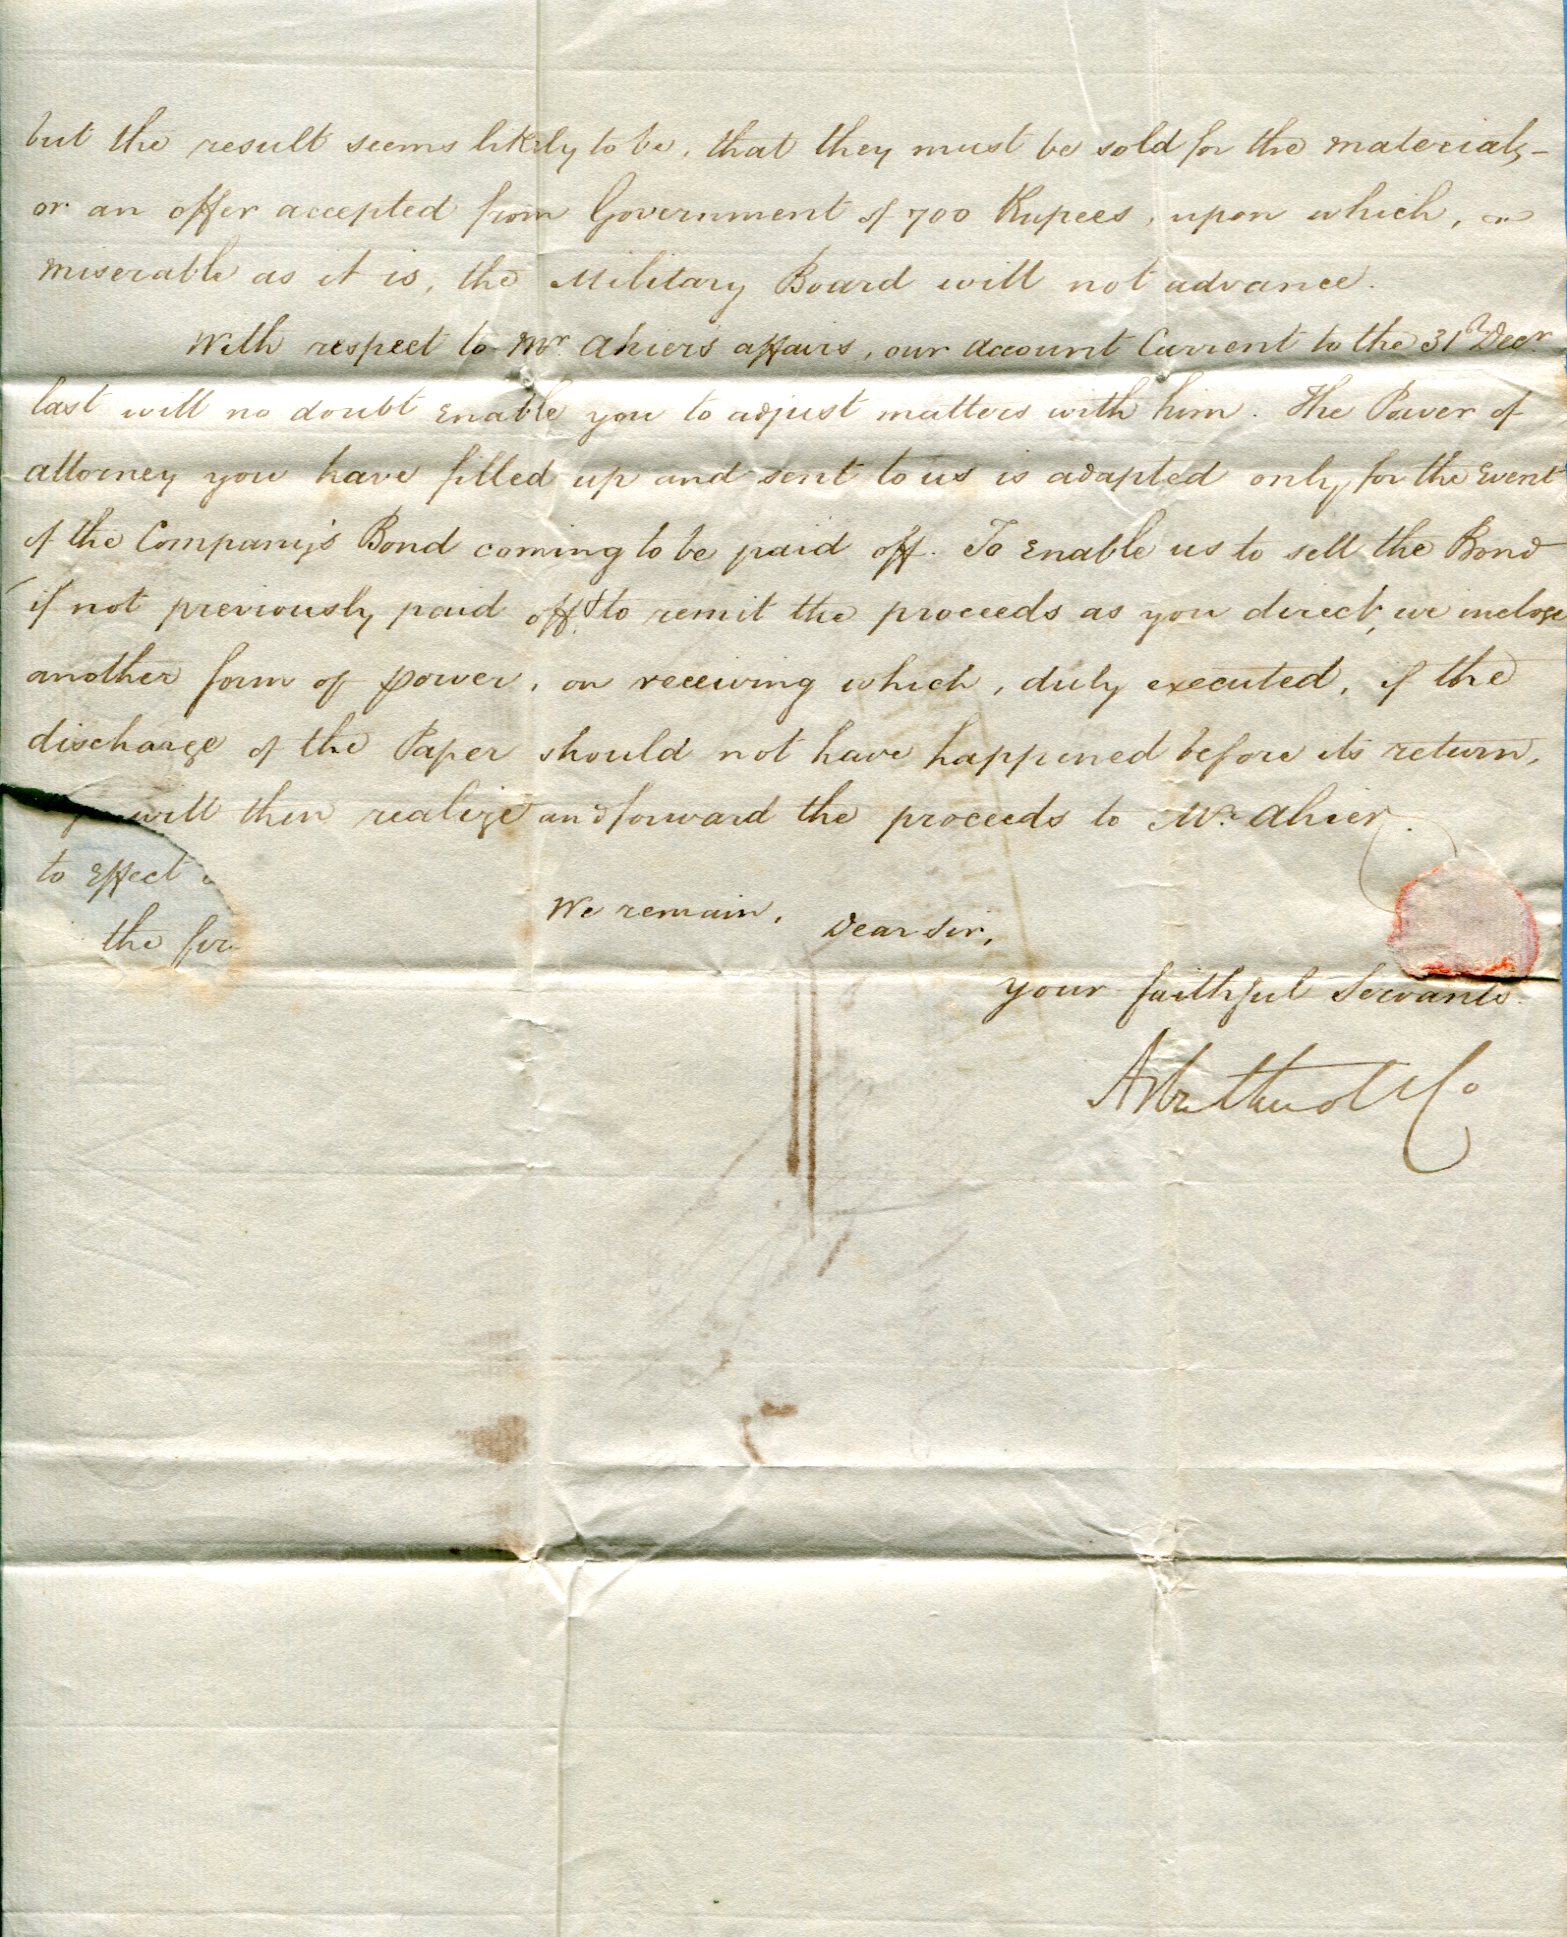 but the result seems likely to be, that they must be sold for the materials,–
or an offer accepted from Government of 700 Rupees, upon which,
miserable as it is, the Military Board will not advance.
With respect to Mr. Ahier's affairs, our account Current to the 31 Decr.
last will no doubt enable you to adjust matters with him. The Power of
attorney you have filled up and sent to us is adapted only for the Event
of the Company's Bond coming to be paid off. To Enable us to sell the Bond
if not previously paid off, & to remit the proceeds as you direct, we inclose
another form of power, on receiving which, duly executed, if the
discharge of the Paper should not have happened before its return,
will then realize and forward the proceeds to Mr. Ahier.
to Effect
the for
We remain,
Dear Sir,
your faithful Servants.
Arbuthnot & Co